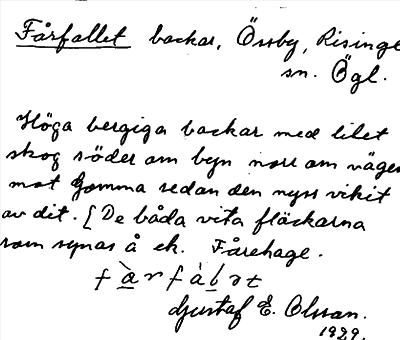 Fårfallet backar, Össby, Risinge
sn. Ögl.
Höga bergiga backar med litet
skog söder om byn norr om vägen
mot Gomma sedan den nyss vikit
av dit. [De båda vita fläckarna
som synas å ek. Fårehage.
Gustaf E. Olsson.
1929.